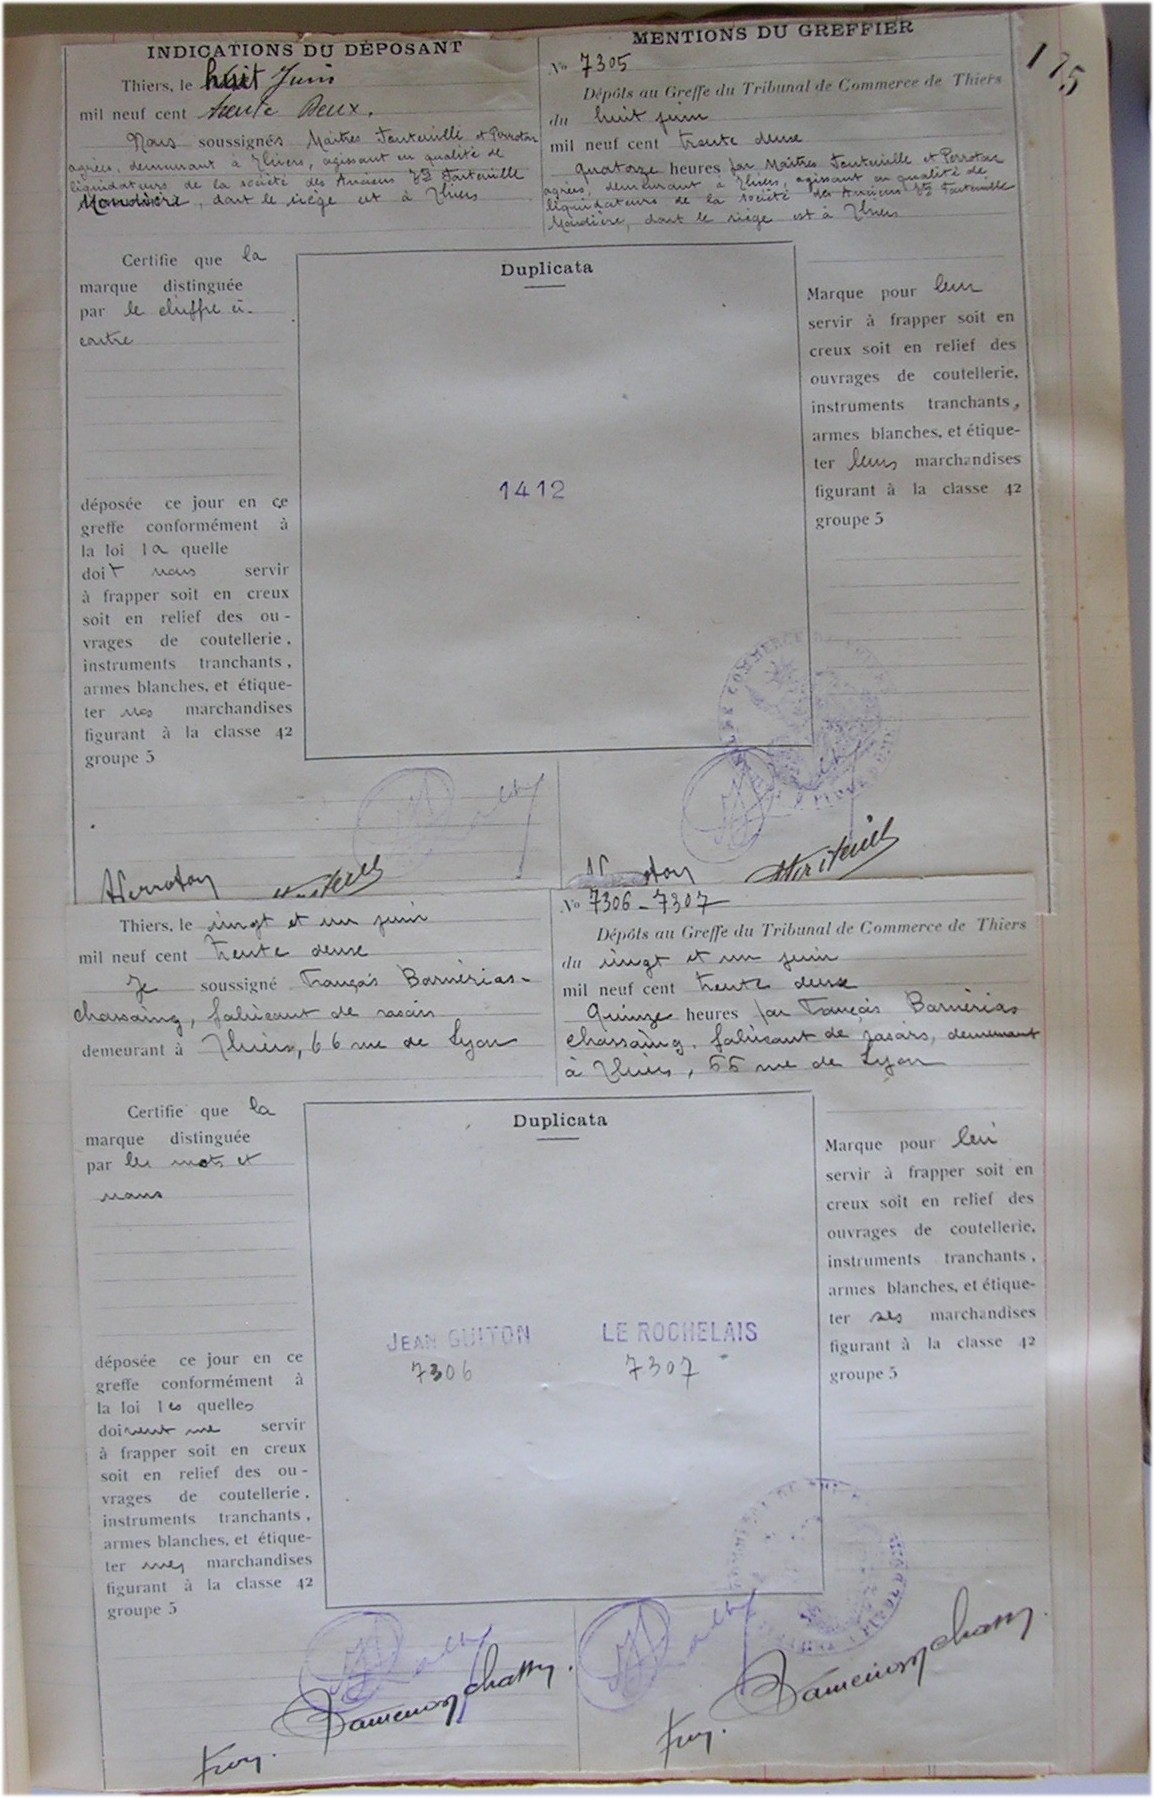 175
INDICATIONS DU DÉPOSANT
Thiers, le huit Juin
mil neuf cent trente Deux.
Nous soussignés Maitres Fontenille et Perrotan
agréés, demeurant à Thiers, agissant en qualité de
liquidateurs de la société des Anciens Fontenille
Mondière, dont le siège est à Thiers
MENTIONS DU GREFFIER
No 7305
Dépôts au Greffe du Tribunal de Commerce de Thiers
du huit juin
mil neuf cent trente deux
quatorze heures par Maîtres Fontenille et Perrotan
agréés, demeurant à Thiers, agissant en qualité de
liquidateurs de la société des Anciens Fontenille
Mondière, dont le siège est à Thiers
Certifie que la
marque distinguée
par le chiffre ci-
contre
déposée ce jour en ce
greffe conformément à
la loi la quelle
doit nous servir
à frapper soit en creux
soit en relief des ou-
vrages de coutellerie,
instruments tranchants,
armes blanches, et étique-
ter nos marchandises
figurant à la classe 42
groupe 5
Duplicata
1412
Marque pour leur
servir à frapper soit en
creux soit en relief des
ouvrages de coutellerie,
instruments tranchants,
armes blanches, et étique-
ter leurs marchandises
figurant à la classe 42
groupe 5
Thiers, le vingt et un juin
mil neuf cent trente deux
Je soussigné François Barnérias-
chassaing, fabricant de rasoirs
demeurant à Thiers, 66 rue de Lyon
No 7306-7307
Dépôts au Greffe du Tribunal de Commerce de Thiers
du vingt et un juin
mil neuf cent trente deux
Quinze heures par François Barnérias
chassaing, fabricant de rasoirs, demeurant
à Thiers, 66 rue de Lyon
Certifie que la
marque distinguée
par les mots et
noms
déposée ce jour en ce
greffe conformément à
la loi les quelles
doivent me servir
à frapper soit en creux
soit en relief des ou-
vrages de coutellerie,
instruments tranchants,
armes blanches, et étique-
ter mes marchandises
figurant à la classe 42
groupe 5
Duplicata
JEAN GUITON LE ROCHELAIS
7306 7307
Marque pour lui
servir à frapper soit en
creux soit en relief des
ouvrages de coutellerie,
instruments tranchants,
armes blanches, et étique-
ter ses marchandises
figurant à la classe 42
groupe 5